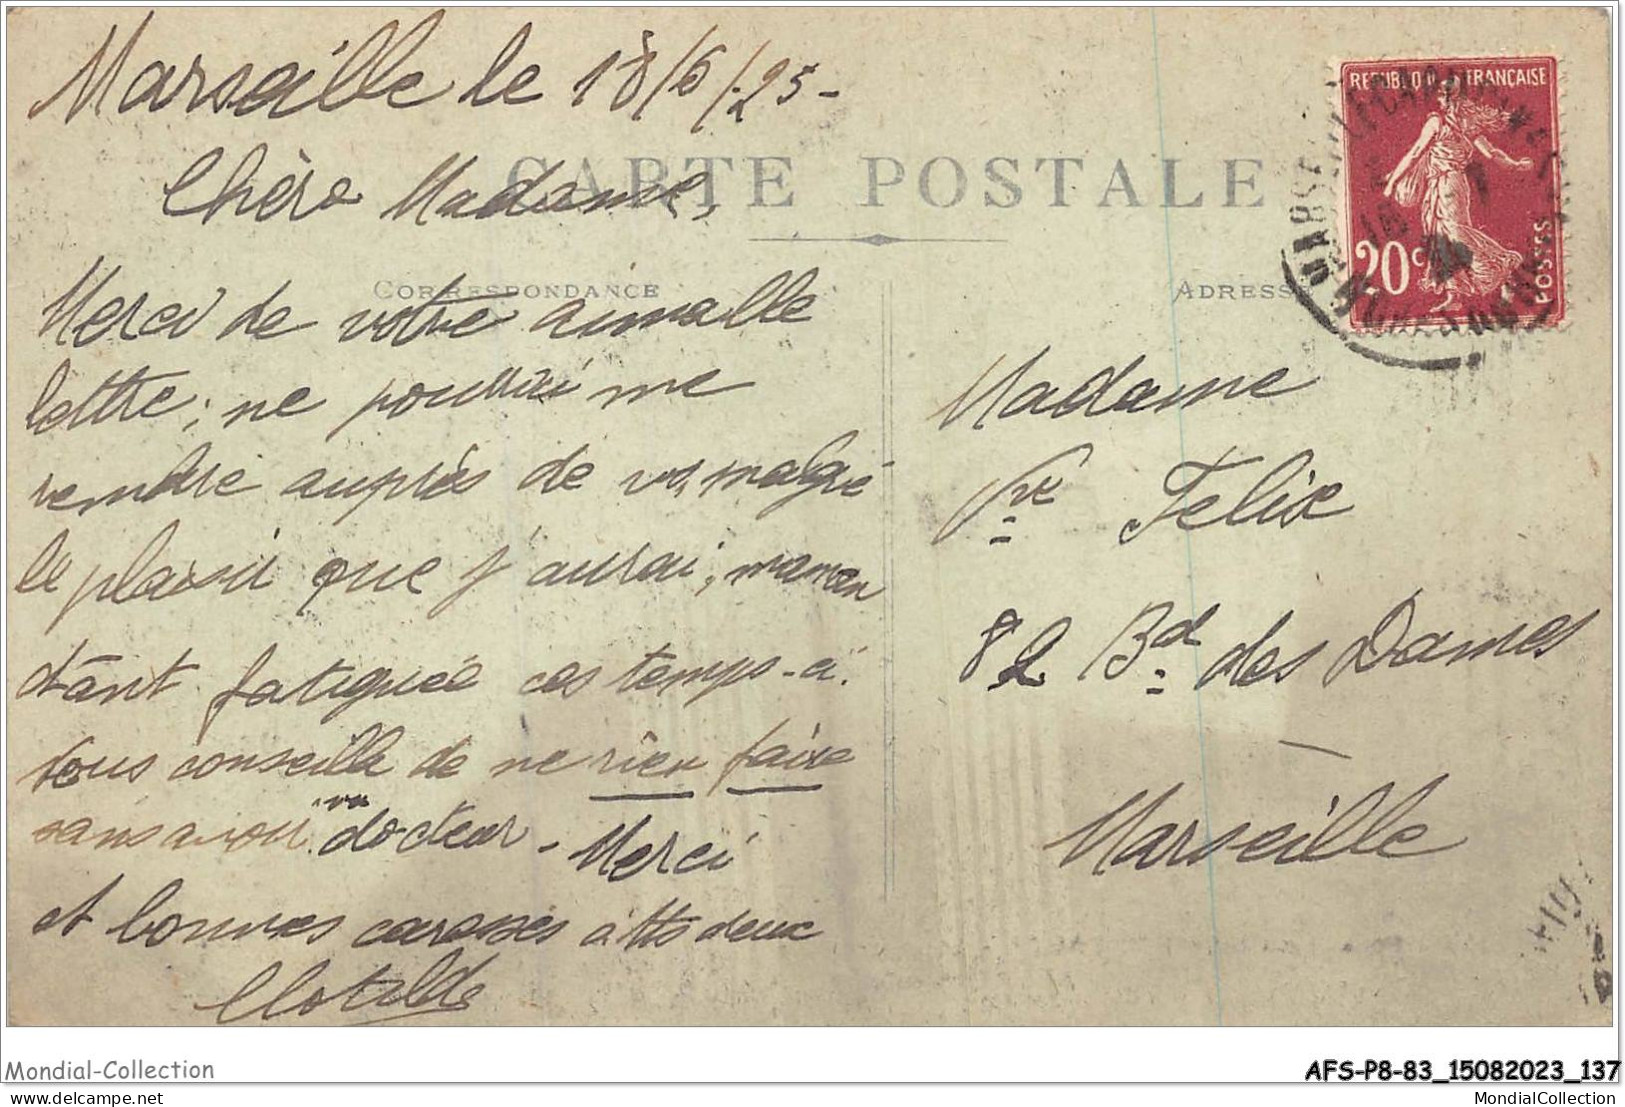 Marseille le 18/6/25-
CARTE POSTALE
Chère Madame,
CORRESPONDANCE
Merci de votre aimable
lettre; ne pourrai me
rendre auprès de vs, malgré
le plaisir que j'aurai, maman
étant fatiguée ces temps-ci.
Vous conseille de ne rien faire
sans avoir vu docteur - Merci
et bonnes caresses à tts deux
Clotilde
REPUBLIQUE FRANÇAISE
20c
POSTES
ADRESSE
Madame
Vve Felix
82 Bd des Dames
Marseille
Mondial-Collection
AFS-P8-83_15082023_137
delcampe.net
MondialCollection